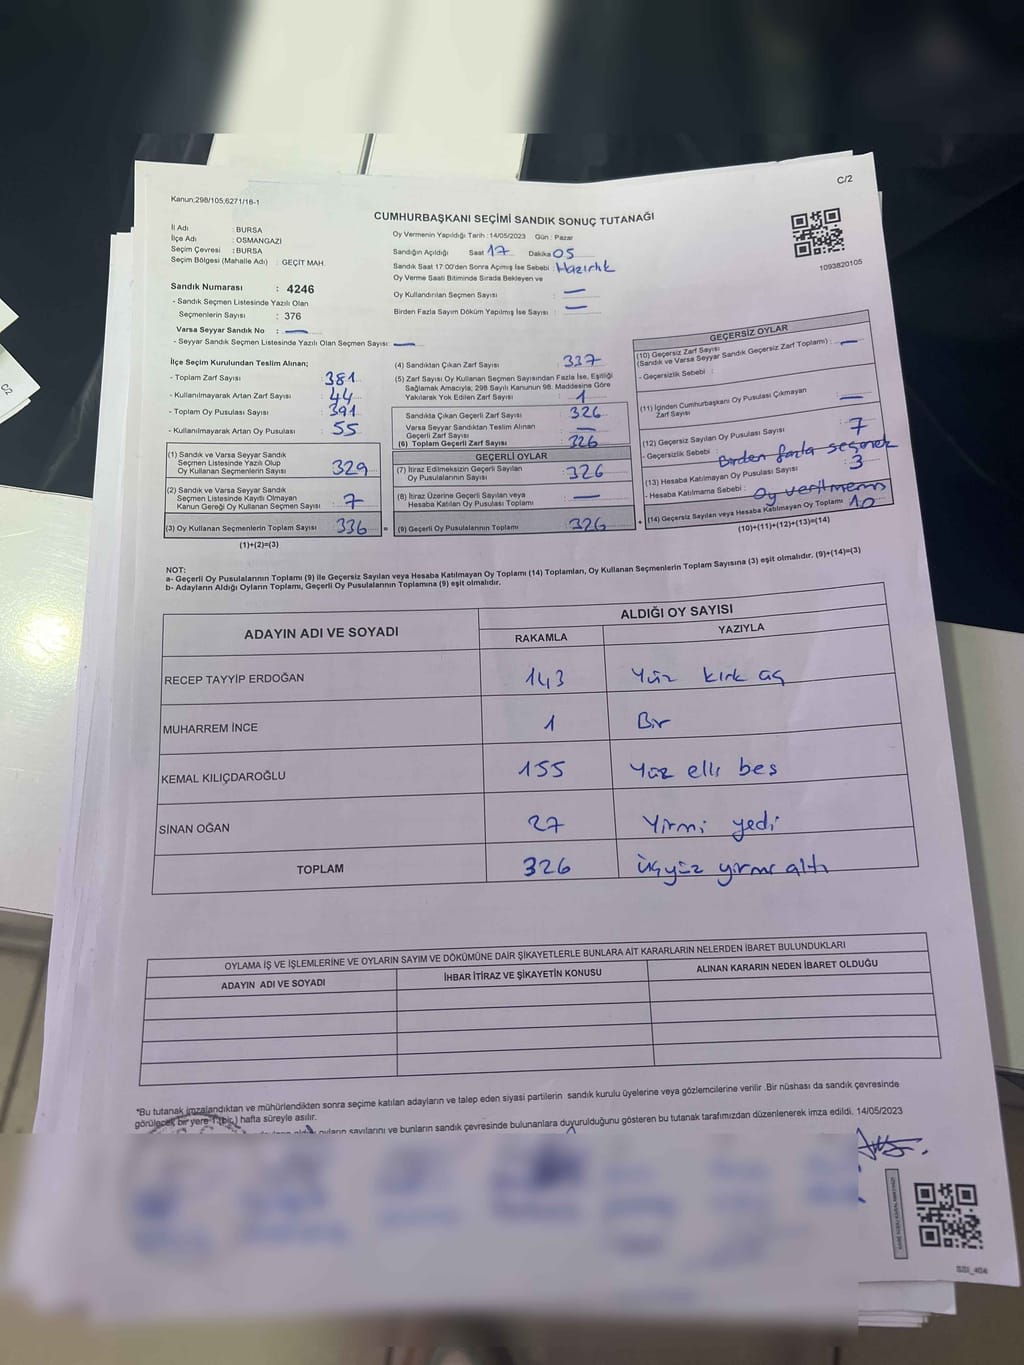 C/2
Kanun;298/105,6271/18-1
CUMHURBAŞKANI SEÇİMİ SANDIK SONUÇ TUTANAĞI
1093820105
İl Adı : BURSA
İlçe Adı : OSMANGAZİ
Seçim Çevresi : BURSA
Seçim Bölgesi (Mahalle Adı) : GEÇİT MAH.
Sandık Numarası : 4246
- Sandık Seçmen Listesinde Yazılı Olan
Seçmenlerin Sayısı : 376
Varsa Seyyar Sandık No : —
- Seyyar Sandık Seçmen Listesinde Yazılı Olan Seçmen Sayısı: —
Oy Vermenin Yapıldığı Tarih : 14/05/2023 Gün : Pazar
Sandığın Açıldığı Saat 17 Dakika 05
Sandık Saat 17:00'den Sonra Açımış İse Sebebi : Hazırlık
Oy Verme Saati Bitiminde Sırada Bekleyen ve
Oy Kullandırılan Seçmen Sayısı : —
Birden Fazla Sayım Döküm Yapılmış İse Sayısı : —
İlçe Seçim Kurulundan Teslim Alınan;
- Toplam Zarf Sayısı : 381
- Kullanılmayarak Artan Zarf Sayısı : 44
- Toplam Oy Pusulası Sayısı : 391
- Kullanılmayarak Artan Oy Pusulası : 55
(1) Sandık ve Varsa Seyyar Sandık
Seçmen Listesinde Yazılı Olup
Oy Kullanan Seçmenlerin Sayısı : 329
(2) Sandık ve Varsa Seyyar Sandık
Seçmen Listesinde Kayıtlı Olmayan
Kanun Gereği Oy Kullanan Seçmen Sayısı : 7
(3) Oy Kullanan Seçmenlerin Toplam Sayısı : 336 =
(1)+(2)=(3)
(4) Sandıktan Çıkan Zarf Sayısı : 337
(5) Zarf Sayısı Oy Kullanan Seçmen Sayısından Fazla İse, Eşitliği
Sağlamak Amacıyla; 298 Sayılı Kanunun 98. Maddesine Göre
Yakılarak Yok Edilen Zarf Sayısı : 1
Sandıkta Çıkan Geçerli Zarf Sayısı : 326
Varsa Seyyar Sandıktan Teslim Alınan
Geçerli Zarf Sayısı : —
(6) Toplam Geçerli Zarf Sayısı : 326
GEÇERLİ OYLAR
(7) İtiraz Edilmeksizin Geçerli Sayılan
Oy Pusulalarının Sayısı : 326
(8) İtiraz Üzerine Geçerli Sayılan veya
Hesaba Katılan Oy Pusulası Toplamı : —
(9) Geçerli Oy Pusulalarının Toplamı : 326 +
GEÇERSİZ OYLAR
(10) Geçersiz Zarf Sayısı
(Sandık ve Varsa Seyyar Sandık Geçersiz Zarf Toplamı) : —
- Geçersizlik Sebebi :
(11) İçinden Cumhurbaşkanı Oy Pusulası Çıkmayan
Zarf Sayısı : —
(12) Geçersiz Sayılan Oy Pusulası Sayısı : 7
- Geçersizlik Sebebi : Birden fazla seçenek
(13) Hesaba Katılmayan Oy Pusulası Sayısı : 3
- Hesaba Katılmama Sebebi : Oy verilmemiş
(14) Geçersiz Sayılan veya Hesaba Katılmayan Oy Toplamı 10
(10)+(11)+(12)+(13)=(14)
NOT:
a- Geçerli Oy Pusulalarının Toplamı (9) ile Geçersiz Sayılan veya Hesaba Katılmayan Oy Toplamı (14) Toplamları, Oy Kullanan Seçmenlerin Toplam Sayısına (3) eşit olmalıdır. (9)+(14)=(3)
b- Adayların Aldığı Oyların Toplamı, Geçerli Oy Pusulalarının Toplamına (9) eşit olmalıdır.
ADAYIN ADI VE SOYADI ALDIĞI OY SAYISI
RAKAMLA YAZIYLA
RECEP TAYYİP ERDOĞAN 143 Yüz kırk üç
MUHARREM İNCE 1 Bir
KEMAL KILIÇDAROĞLU 155 Yüz elli beş
SİNAN OĞAN 27 Yirmi yedi
TOPLAM 326 üçyüz yirmi altı
OYLAMA İŞ VE İŞLEMLERİNE VE OYLARIN SAYIM VE DÖKÜMÜNE DAİR ŞİKAYETLERLE BUNLARA AİT KARARLARIN NELERDEN İBARET BULUNDUKLARI
ADAYIN ADI VE SOYADI İHBAR İTİRAZ VE ŞİKAYETİN KONUSU ALINAN KARARIN NEDEN İBARET OLDUĞU
*Bu tutanak imzalandıktan ve mühürlendikten sonra seçime katılan adayların ve talep eden siyasi partilerin sandık kurulu üyelerine veya gözlemcilerine verilir .Bir nüshası da sandık çevresinde
görülecek bir yere 1 (bir ) hafta süreyle asılır.
oyların sayılarını ve bunların sandık çevresinde bulunanlara duyurulduğunu gösteren bu tutanak tarafımızdan düzenlenerek imza edildi. 14/05/2023
SSİ_404
C2